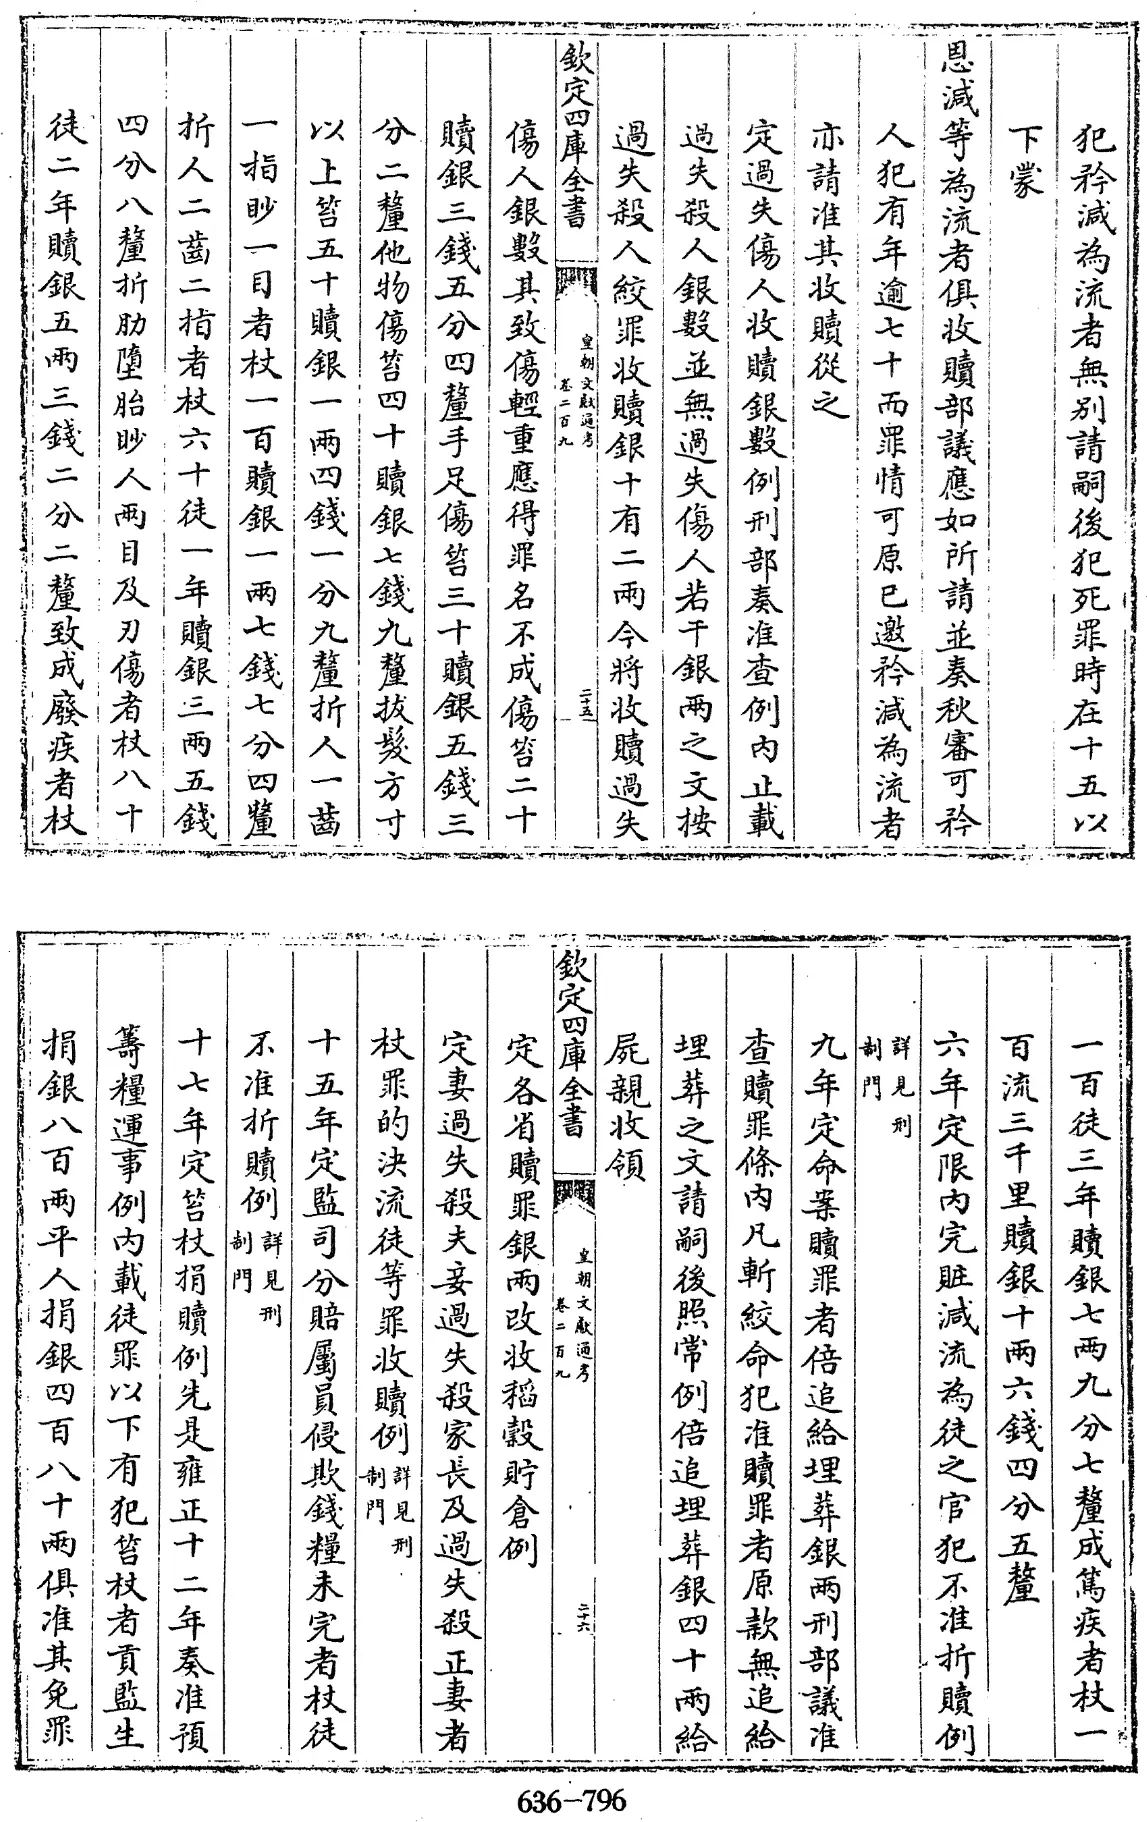 犯矜減為流者無別請嗣後犯死罪時在十五以
下蒙
恩減等為流者俱收贖部議應如所請並奏秋審可矜
人犯有年逾七十而罪情可原已邀矜減為流者
亦請准其收贖從之
定過失傷人收贖銀數例刑部奏准查例內止載
過失殺人銀數並無過失傷人若干銀兩之文按
過失殺人絞罪收贖銀十有二兩今將收贖過失
欽定四庫全書
皇朝文獻通考
卷二百九
二十五
傷人銀數其致傷輕重應得罪名不成傷笞二十
贖銀三錢五分四釐手足傷笞三十贖銀五錢三
分二釐他物傷笞四十贖銀七錢九釐拔髮方寸
以上笞五十贖銀一兩四錢一分九釐折人一齒
一指眇一目者杖一百贖銀一兩七錢七分四釐
折人二齒二指者杖六十徒一年贖銀三兩五錢
四分八釐折肋墮胎眇人兩目及刃傷者杖八十
徒二年贖銀五兩三錢二分二釐致成廢疾者杖
一百徒三年贖銀七兩九分七釐成篤疾者杖一
百流三千里贖銀十兩六錢四分五釐
六年定限內完贓減流為徒之官犯不准折贖例
詳見刑
制門
九年定命案贖罪者倍追給埋葬銀兩刑部議准
查贖罪條內凡斬絞命犯准贖罪者原款無追給
埋葬之文請嗣後照常例倍追埋葬銀四十兩給
屍親收領
欽定四庫全書
皇朝文獻通考
卷二百九
二十六
定各省贖罪銀兩改收稻穀貯倉例
定妻過失殺夫妾過失殺家長及過失殺正妻者
杖罪的決流徒等罪收贖例詳見刑
制門
十五年定監司分賠屬員侵欺錢糧未完者杖徒
不准折贖例詳見刑
制門
十七年定笞杖捐贖例先是雍正十二年奏准預
籌糧運事例內載徒罪以下有犯笞杖者貢監生
捐銀八百兩平人捐銀四百八十兩俱准其免罪
636-796